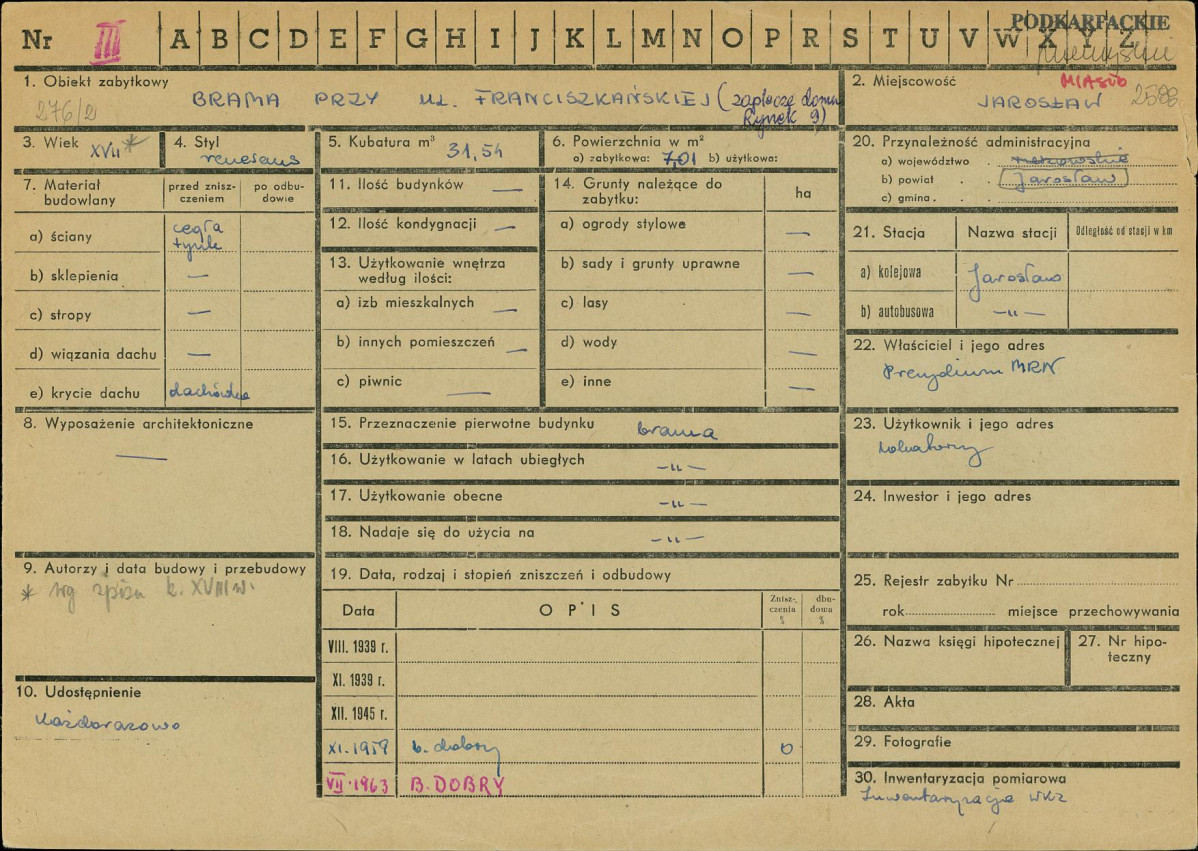 PODKARPACKIE
Nr III A B C D E F G H I J K L M N O P R S T U V W X Y Z
1. Obiekt zabytkowy
276/2
BRAMA PRZY UL. FRANCISZKAŃSKIEJ (zaplecze domu
Rynek 9)
2. Miejscowość
MIASTO
JAROSŁAW 2588
3. Wiek
XVII *
4. Styl
renesans
5. Kubatura m³
31,54
6. Powierzchnia w m²
a) zabytkowa: 7,01 b) użytkowa:
7. Materiał budowlany
przed zniszczeniem
po odbudowie
a) ściany
cegła
tynk
b) sklepienia —
c) stropy —
d) wiązania dachu —
e) krycie dachu dachówka
8. Wyposażenie architektoniczne
—
9. Autorzy i data budowy i przebudowy
* wg spisu k. XVIII w.
10. Udostępnienie
każdorazowo
11. Ilość budynków —
12. Ilość kondygnacji —
13. Użytkowanie wnętrza
według ilości:
a) izb mieszkalnych —
b) innych pomieszczeń —
c) piwnic —
14. Grunty należące do
zabytku:
ha
a) ogrody stylowe —
b) sady i grunty uprawne —
c) lasy —
d) wody —
e) inne —
15. Przeznaczenie pierwotne budynku brama
16. Użytkowanie w latach ubiegłych —„—
17. Użytkowanie obecne —„—
18. Nadaje się do użycia na —„—
19. Data, rodzaj i stopień zniszczeń i odbudowy
Data
OPIS
Zniszczenia %
dbudowa %
VIII. 1939 r.
XI. 1939 r.
XII. 1945 r.
XI. 1959 b. dobry 0
VII. 1963 B. DOBRY
20. Przynależność administracyjna
a) województwo rzeszowskie
b) powiat Jarosław
c) gmina
21. Stacja
Nazwa stacji
Odległość od stacji w km
a) kolejowa Jarosław
b) autobusowa —„—
22. Właściciel i jego adres
Prezydium MRN
23. Użytkownik i jego adres
lokatorzy
24. Inwestor i jego adres
25. Rejestr zabytku Nr
rok miejsce przechowywania
26. Nazwa księgi hipotecznej
27. Nr hipoteczny
28. Akta
29. Fotografie
30. Inwentaryzacja pomiarowa
Inwentaryzacja WKZ